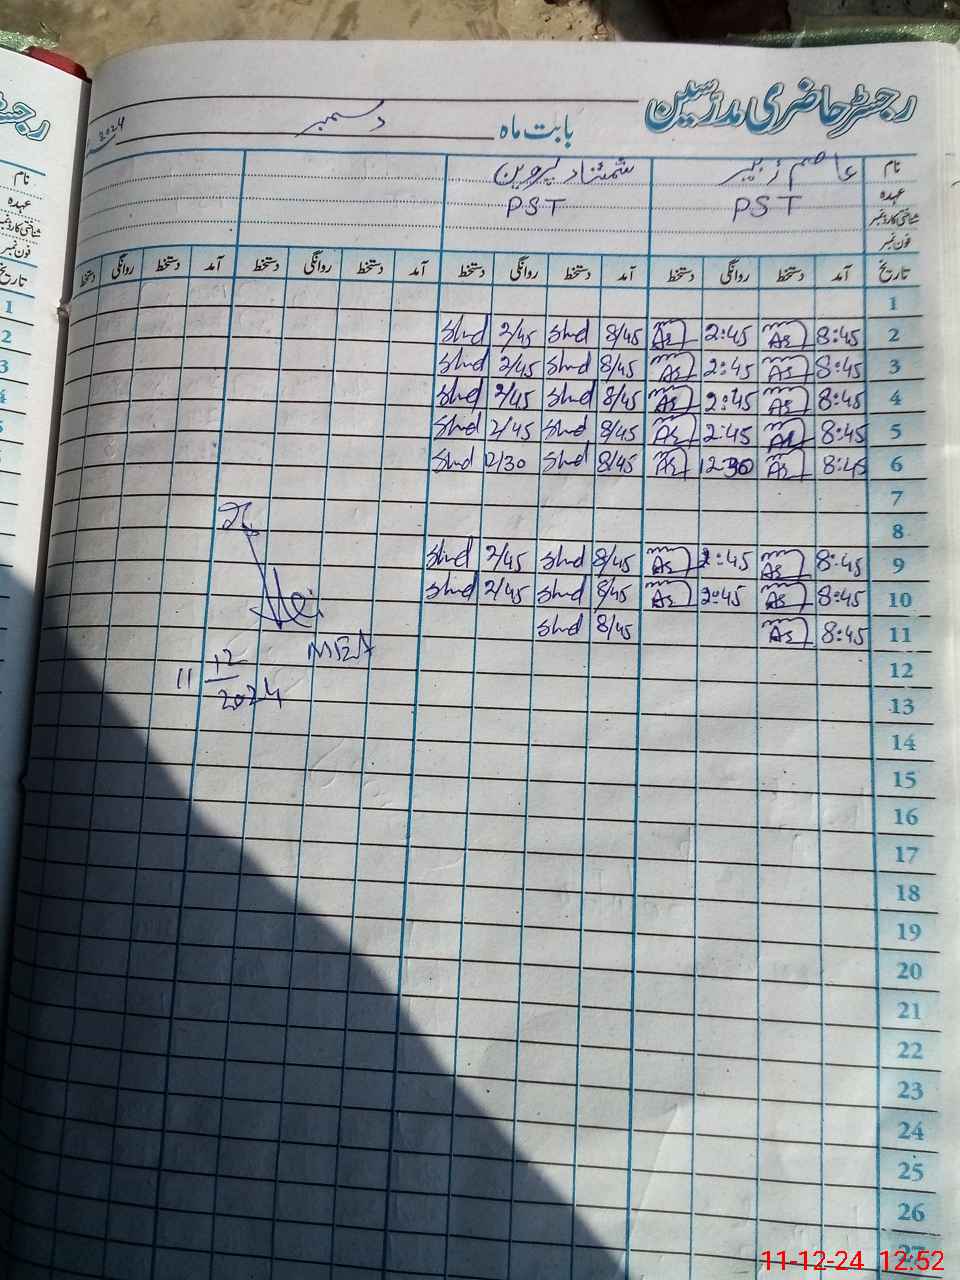 رجسٹر حاضری مدرسین
بابت ماہ دسمبر 2024
نام عاصم زبیر شمشاد پروین
عہدہ PST PST
شناختی کارڈ نمبر
فون نمبر
تاریخ آمد دستخط روانگی دستخط آمد دستخط روانگی دستخط آمد دستخط روانگی دستخط آمد دستخط روانگی دستخط
1
2 8:45 As 2:45 As 8/45 Shd 2/45 Shd
3 8:45 As 2:45 As 8/45 Shd 2/45 Shd
4 8:45 As 2:45 As 8/45 Shd 2/45 Shd
5 8:45 As 2:45 As 8/45 Shd 2/45 Shd
6 8:45 As 12:30 As 8/45 Shd 12/30 Shd
7
8
9 8:45 As 2:45 As 8/45 Shd 2/45 Shd
10 8:45 As 2:45 As 8/45 Shd 2/45 Shd
11 8:45 As 8/45 Shd
MEA
11 12 2024
12
13
14
15
16
17
18
19
20
21
22
23
24
25
26
27
11-12-24 12:52